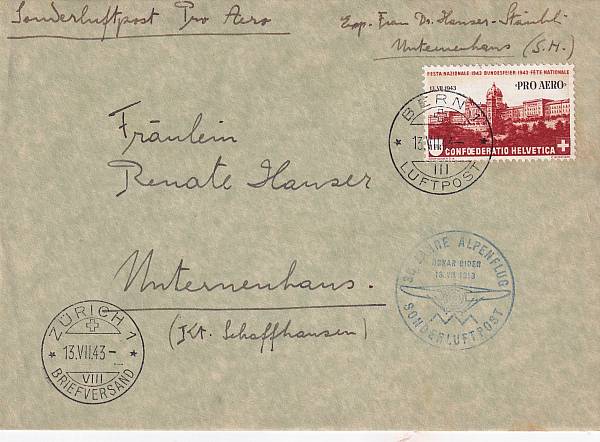 Sonderluftpost Pro Aero
Exp. Frau Dr. Hauser-Stäubli
Unterneuhaus (S.H.)
FESTA NAZIONALE 1943 BUNDESFEIER 1943 FÊTE NATIONALE
13.VII.1943
·PRO AERO·
CONFŒDERATIO HELVETICA
BERN 2
13.VII.43
III
LUFTPOST
Fräulein
Renate Hauser
Unterneuhaus.
(Kt. Schaffhausen)
30 JAHRE ALPENFLUG
OSKAR BIDER
13.VII.1913
SONDERLUFTPOST
ZÜRICH 1
13.VII.43-
VIII
BRIEFVERSAND